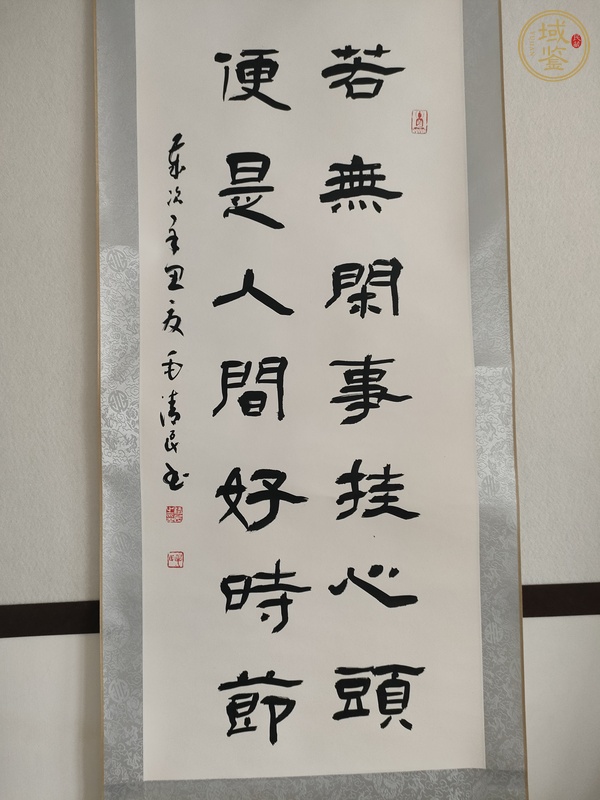 若無閑事挂心頭
便是人間好時節
歲次辛丑夏毛清民书
域鉴